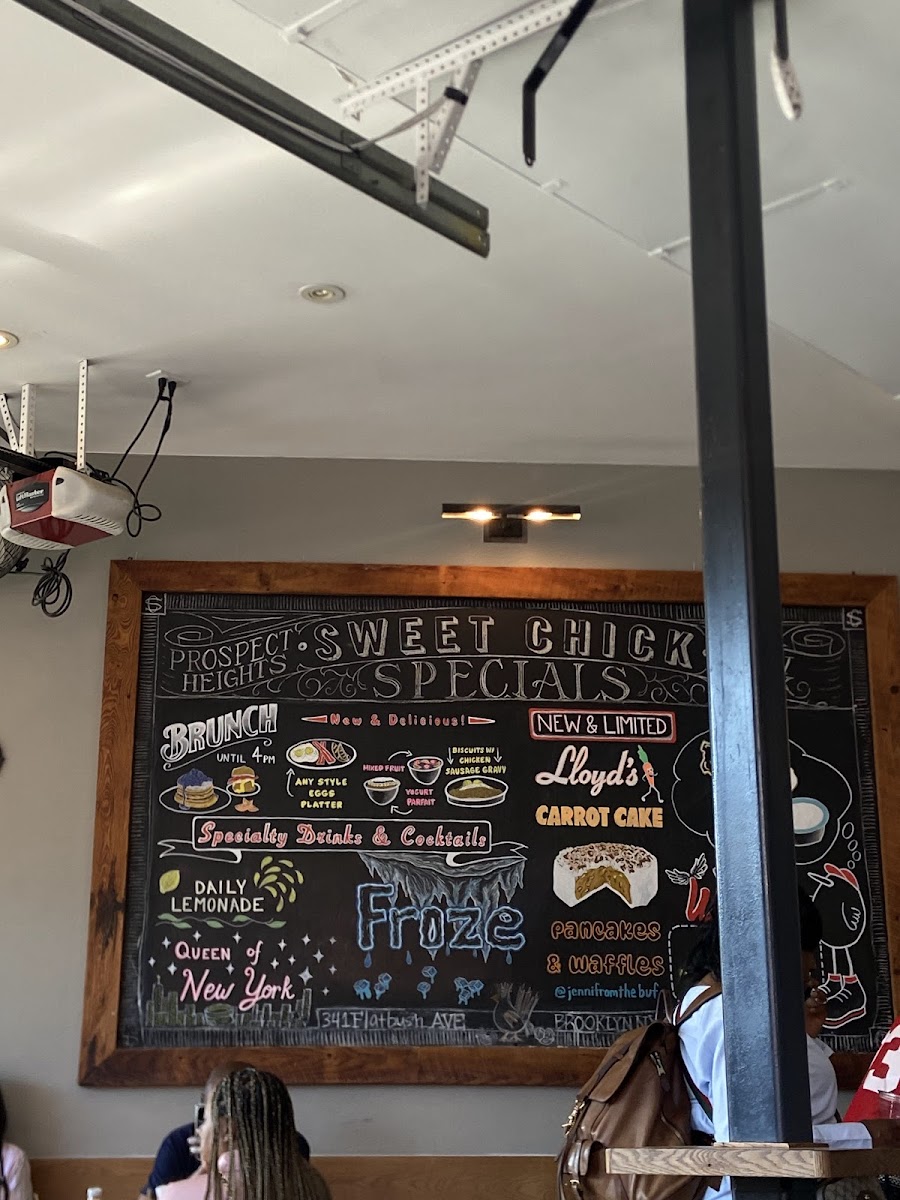 PROSPECT HEIGHTS
• SWEET CHICK •
SPECIALS
BRUNCH
UNTIL 4PM
New & Delicious!
ANY STYLE
EGGS
PLATTER
MIXED FRUIT
YOGURT
PARFAIT
BISCUITS W/
CHICKEN
SAUSAGE GRAVY
NEW & LIMITED
Lloyd's
CARROT CAKE
PANCAKES
& WAFFLES
@jennifromthebuf
Specialty Drinks & Cocktails
DAILY
LEMONADE
Froze
QUEEN of
New York
341 Flatbush AVE
BROOKLYN NY
3